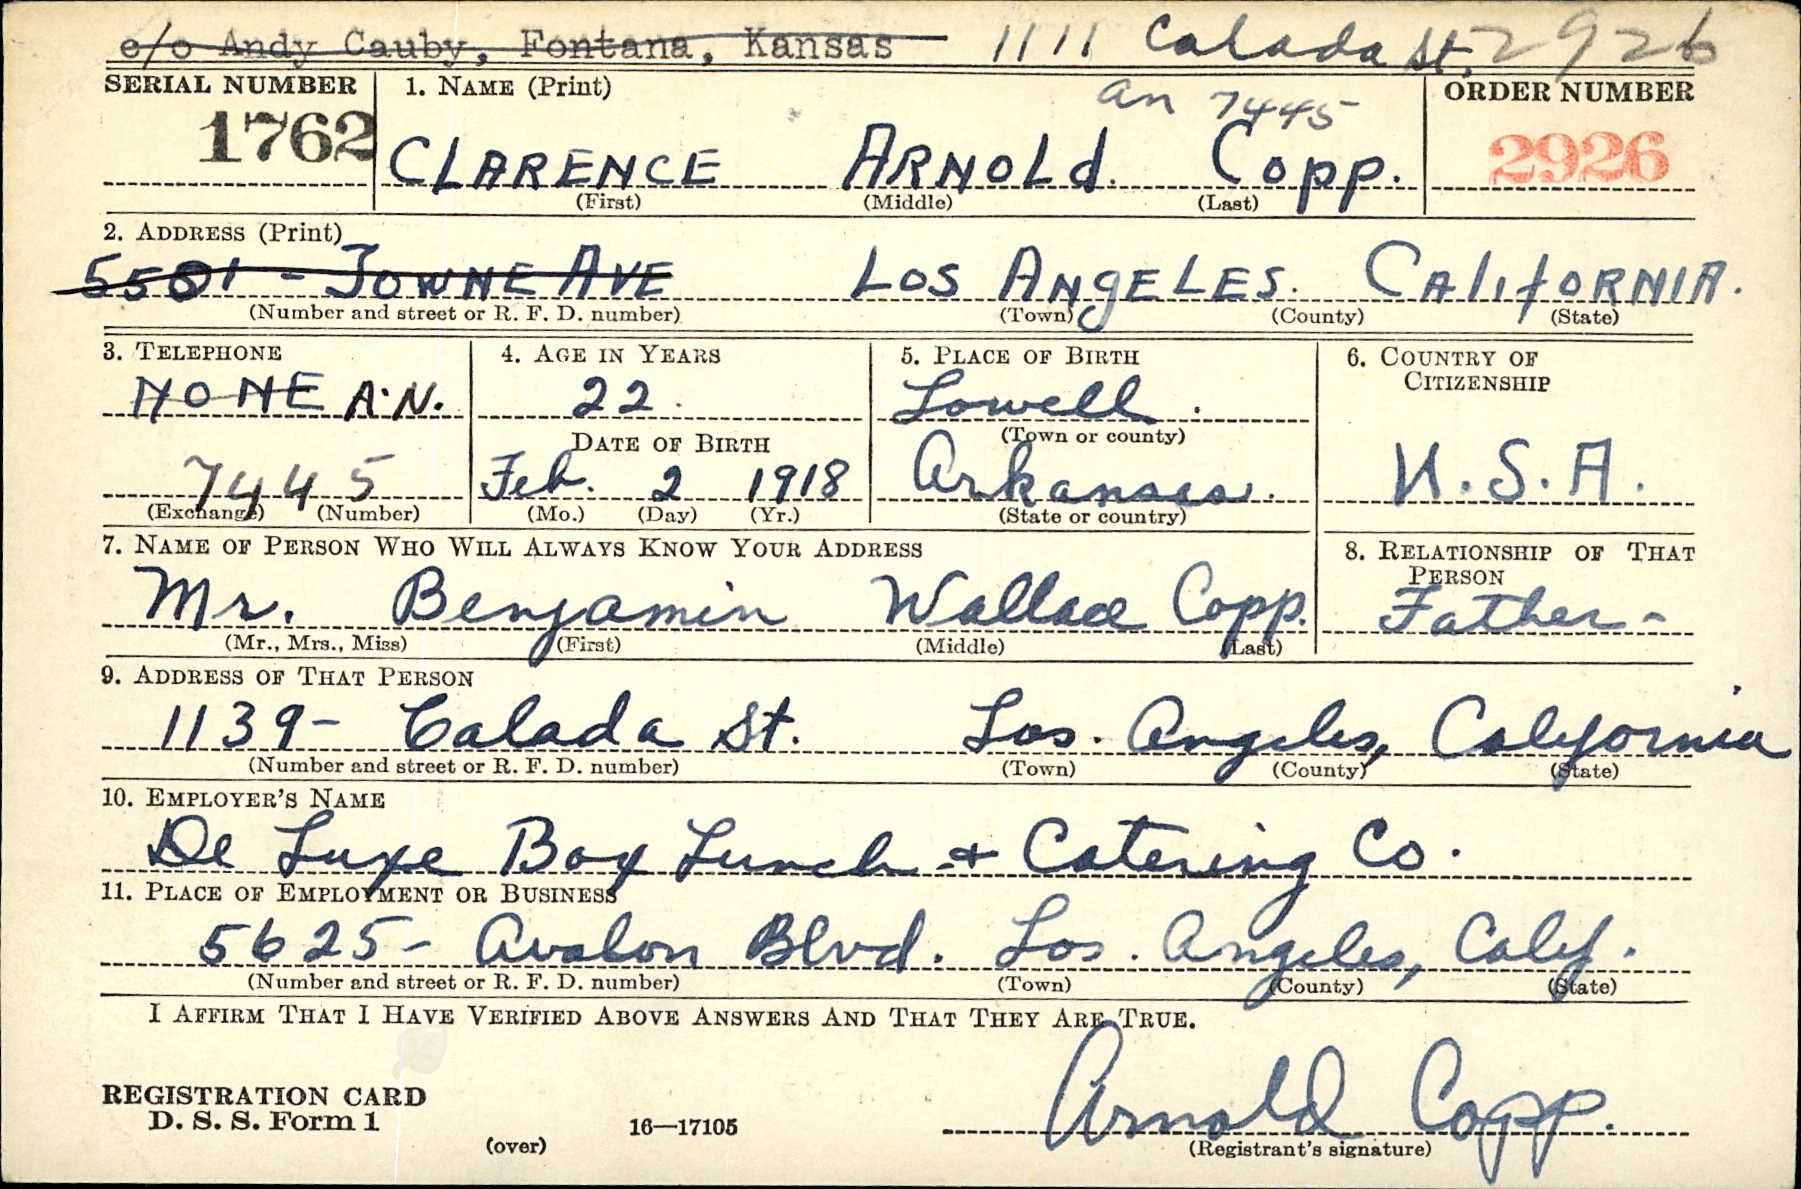 c/o Andy Cauby, Fontana, Kansas 1111 Calada St. 2926
SERIAL NUMBER 1. NAME (Print) an 7445 ORDER NUMBER
1762 CLARENCE ARNOLD. Copp. 2926
(First) (Middle) (Last)
2. ADDRESS (Print)
5501 - TOWNE AVE LOS ANgELES. CAlifORNIA.
(Number and street or R. F. D. number) (Town) (County) (State)
3. TELEPHONE 4. AGE IN YEARS 5. PLACE OF BIRTH 6. COUNTRY OF CITIZENSHIP
NONE A.N. 22. Lowell.
DATE OF BIRTH (Town or county)
7445 Feb. 2 1918 Arkansas. U.S.A.
(Exchange) (Number) (Mo.) (Day) (Yr.) (State or country)
7. NAME OF PERSON WHO WILL ALWAYS KNOW YOUR ADDRESS 8. RELATIONSHIP OF THAT PERSON
Mr. Benjamin Wallace Copp. Father-
(Mr., Mrs., Miss) (First) (Middle) (Last)
9. ADDRESS OF THAT PERSON
1139- Calada St. Los. Angeles, California
(Number and street or R. F. D. number) (Town) (County) (State)
10. EMPLOYER'S NAME
De Luxe Box Lunch + Catering Co.
11. PLACE OF EMPLOYMENT OR BUSINESS
5625- Avalon Blvd. Los. Angeles, Calif.
(Number and street or R. F. D. number) (Town) (County) (State)
I AFFIRM THAT I HAVE VERIFIED ABOVE ANSWERS AND THAT THEY ARE TRUE.
REGISTRATION CARD
D. S. S. Form 1 16—17105 Arnold Copp.
(over) (Registrant's signature)